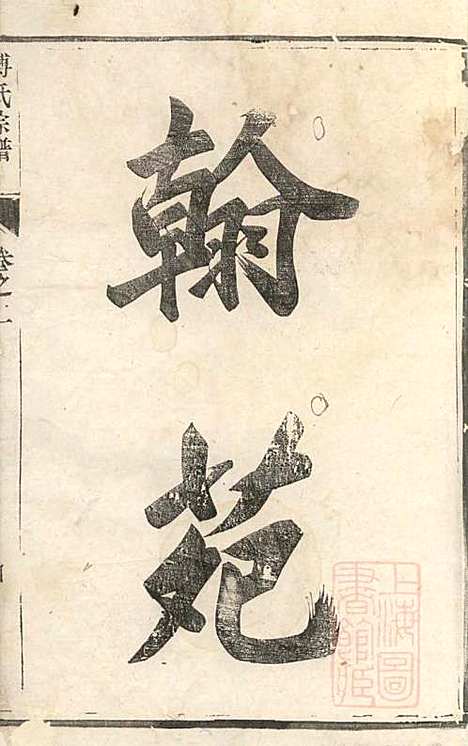 翰苑
上海圖
書館藏
傅氏宗譜
卷之二